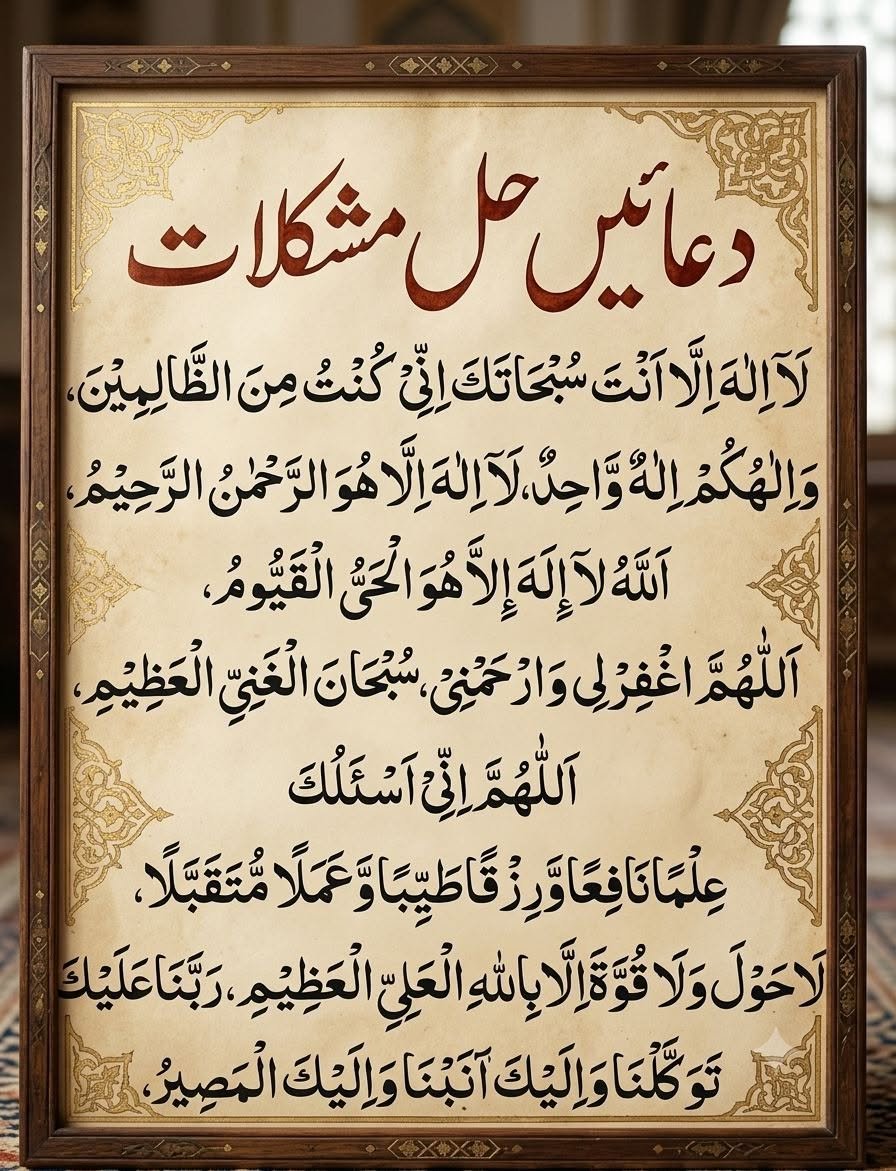 دعائیں حل مشکلات
لَآ اِلٰهَ اِلَّا اَنْتَ سُبْحَاتَكَ اِنِّیْ كُنْتُ مِنَ الظَّالِمِیْنَ،
وَاِلٰهُكُمْ اِلٰهٌ وَّاحِدٌ، لَآ اِلٰهَ اِلَّا هُوَ الرَّحْمٰنُ الرَّحِیْمُ،
اَللَّهُ لآ إِلَهَ إِلاَّ هُوَ الْحَیُّ الْقَیُّومُ،
اَللّٰهُمَّ اغْفِرْلِی وَارْحَمْنِیْ، سُبْحَانَ الْغَنِیِّ الْعَظِیْمِ،
اَللّٰهُمَّ اِنِّیْ اَسْئَلُكَ
عِلْمًا نَافِعًا وَّرِزْقًا طَیِّبًا وَّعَمَلًا مُّتَقَبَّلًا،
لَا حَوْلَ وَلَا قُوَّةَ اِلَّا بِاللهِ الْعَلِیِّ الْعَظِیْمِ، رَبَّنَا عَلَیْكَ
تَوَكَّلْنَا وَاِلَیْكَ آنَبْنَا وَاِلَیْكَ الْمَصِیرُ،